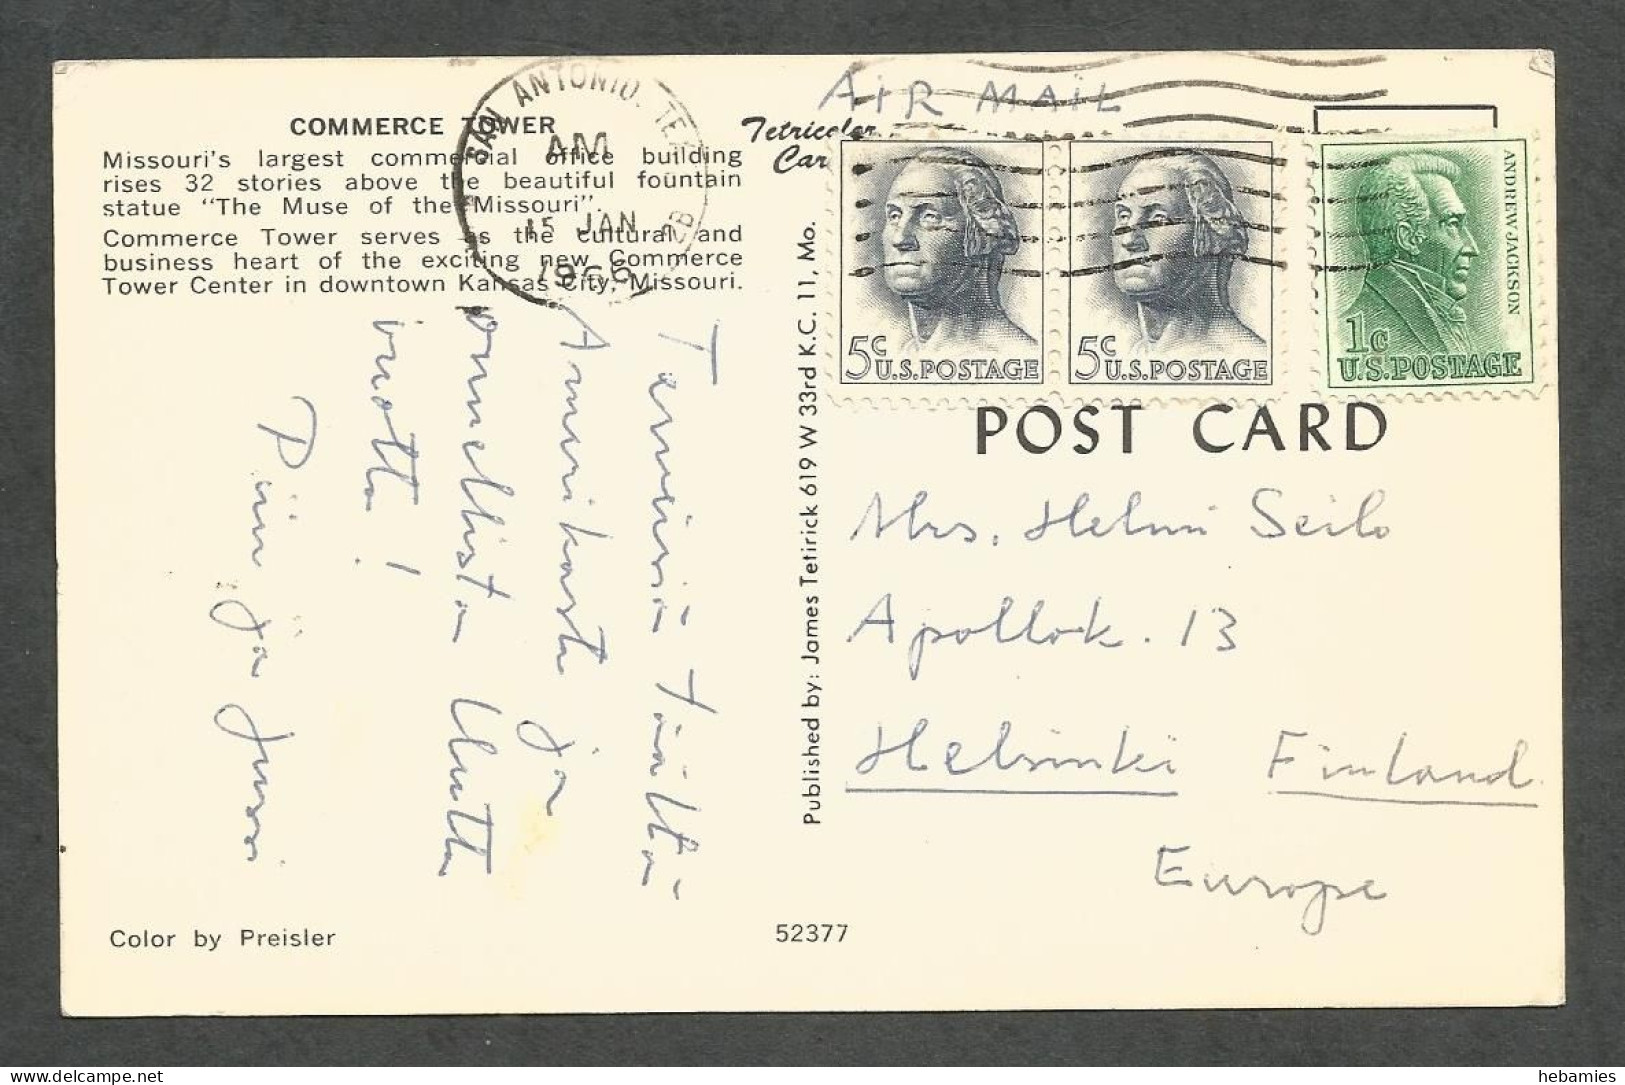 COMMERCE TOWER
Missouri's largest commercial office building
rises 32 stories above the beautiful fountain
statue "The Muse of the Missouri".
Commerce Tower serves as the cultural and
business heart of the exciting new Commerce
Tower Center in downtown Kansas City, Missouri.
SAN ANTONIO, TE
AM
15 JAN
196
AIR MAIL
Tetricolor
Car
5c U.S.POSTAGE
5c U.S.POSTAGE
ANDREW JACKSON
1c
U.S.POSTAGE
Published by: James Tetirick 619 W 33rd K.C. 11, Mo.
POST CARD
Mrs. Helmi Seilo
Apollok. 13
Helsinki Finland
Europe
Terveisiä täältä
Amerikasta ja
onnellista Uutta
vuotta!
ja Jussi
Color by Preisler
52377
hebamies